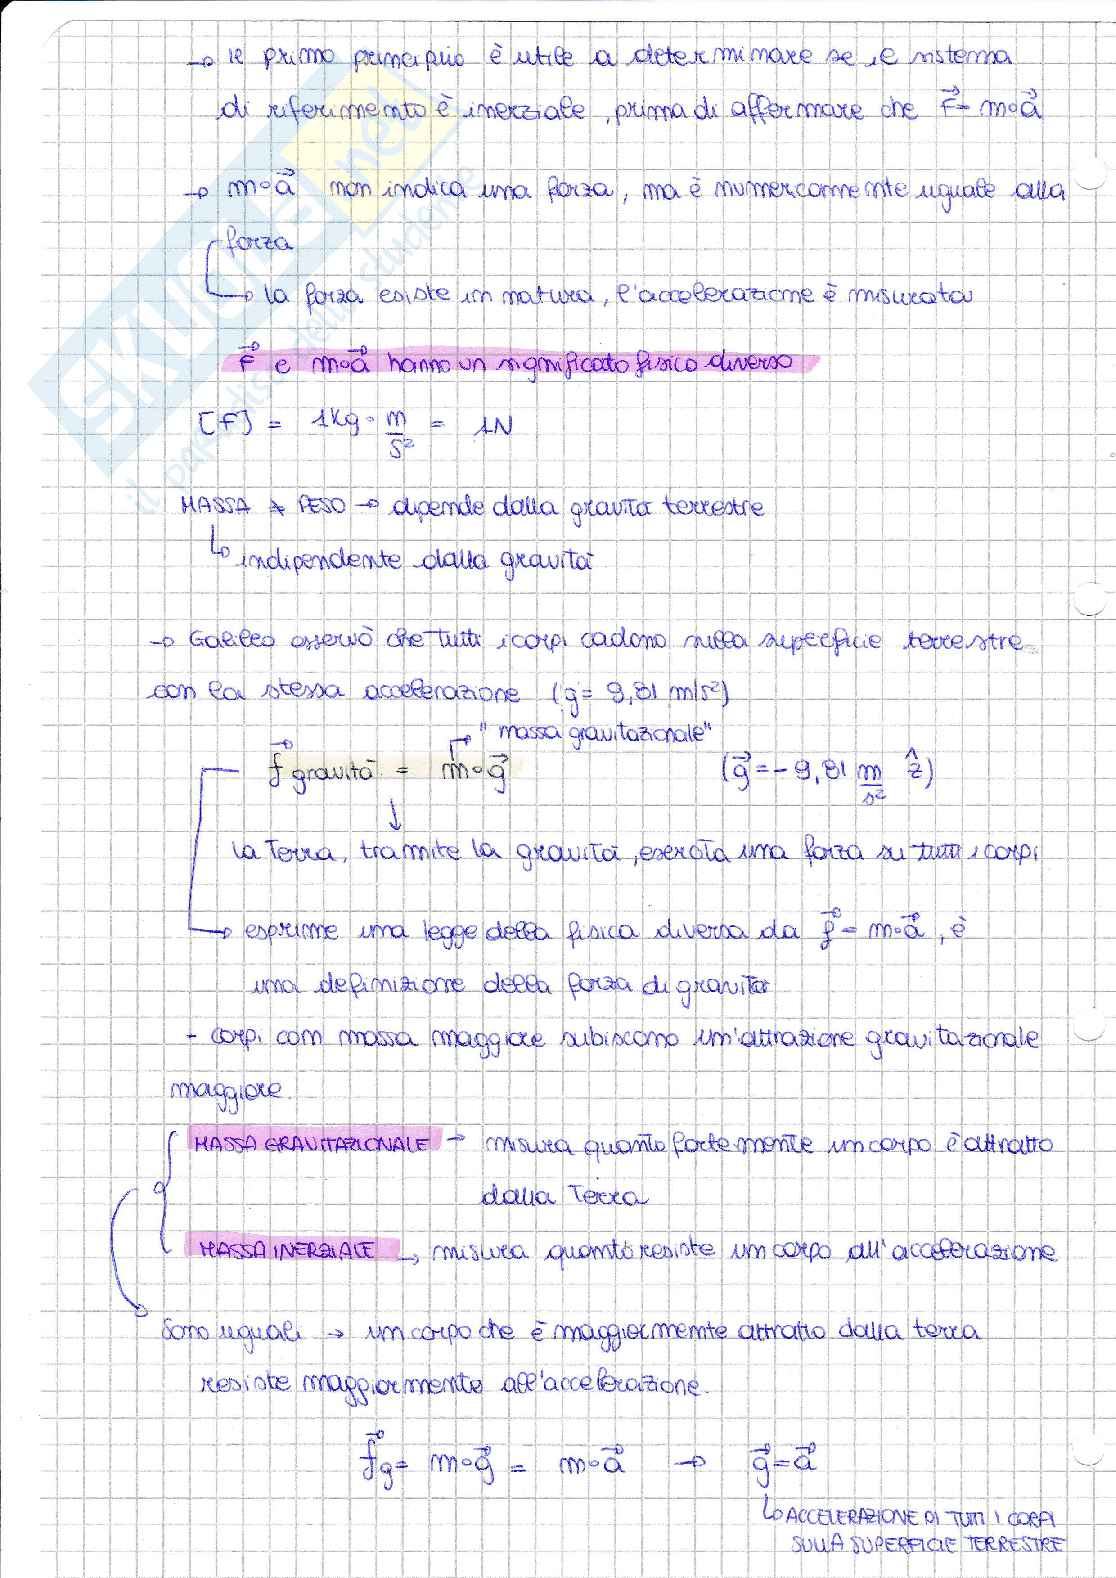 → il primo principio è utile a determinare se il sistema
di riferimento è inerziale, prima di affermare che F⃗ = m∘a⃗
→ m∘a⃗ non indica una forza, ma è numericamente uguale alla
forza
→ la forza esiste in natura, l'accelerazione è misurata
F⃗ e m∘a⃗ hanno un significato fisico diverso
[F] = 1Kg · m/s² = 1N
MASSA ≠ PESO → dipende dalla gravità terrestre
↳ indipendente dalla gravità
→ Galileo osservò che tutti i corpi cadono sulla superficie terrestre
con la stessa accelerazione (g = 9,81 m/s²)
"massa gravitazionale"
f⃗ gravità = m∘g⃗ (g⃗ = - 9,81 m/s² ẑ)
↓
la Terra, tramite la gravità, esercita una forza su tutti i corpi
→ esprime una legge della fisica diversa da f⃗ = m∘a⃗, è
una definizione della forza di gravità
- corpi con massa maggiore subiscono un'attrazione gravitazionale
maggiore
MASSA GRAVITAZIONALE → misura quanto fortemente un corpo è attratto
dalla Terra
MASSA INERZIALE → misura quanto resiste un corpo all'accelerazione
Sono uguali → un corpo che è maggiormente attratto dalla terra
resiste maggiormente all'accelerazione.
f⃗g = m∘g⃗ = m∘a⃗ → g⃗ = a⃗
↳ ACCELERAZIONE DI TUTTI I CORPI
SULLA SUPERFICIE TERRESTRE
SKUOLA.net
il paradiso dello studente